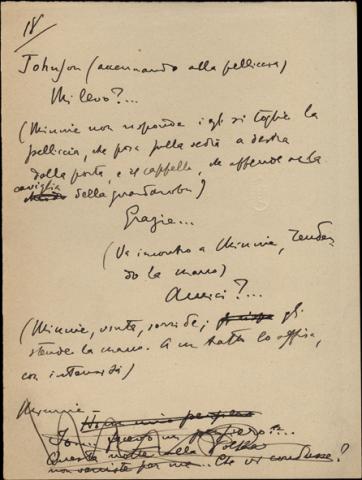 18
Johnson (accennando alla pelliccia)
Mi levo?...
(Minnie non risponde: egli si toglie la
pelliccia, che posa sulla sedia a destra
della porta, e il cappello, che appende alla
caviglia della guardaroba)
Grazie...
(Va incontro a Minnie, tenden-
do la mano)
Amici?...
(Minnie, vinta, sorride, gli
stende la mano. A un tratto lo affisa,
con intensità)
Minnie
Io... penso un pensiero?...
Questa notte alla "Polka"
non veniste per me... Che vi condusse?